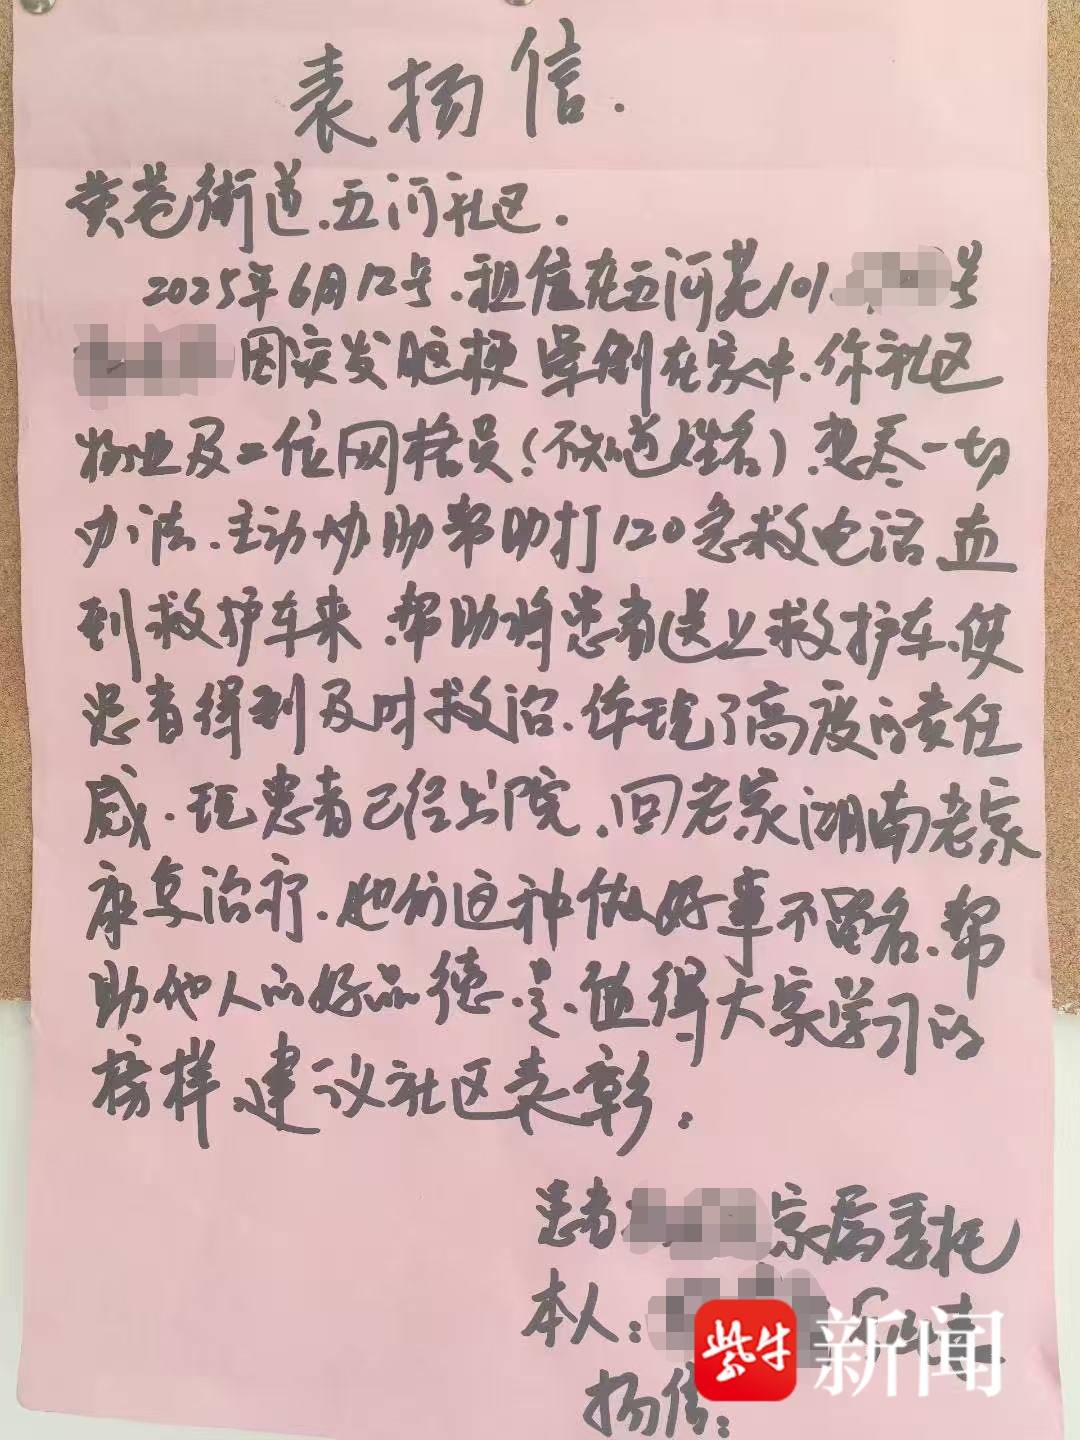 表扬信.
黄巷街道.五河社区.
2025年6月12号.租住在五河苑101. 号
因突发脑梗晕倒在家中.你社区
物业及二位网格员(不知道姓名).想尽一切
办法.主动协助帮助打120急救电话 直
到救护车来.帮助将患者送上救护车.使
患者得到及时救治.体现了高度的责任
感.现患者已经出院.回老家湖南老家
康复治疗.他们这种做好事不留名.帮
助他人的好品德.是.值得大家学习的
榜样.建议社区表彰.
患者 家属委托
本人: 表
扬信:
紫牛新闻